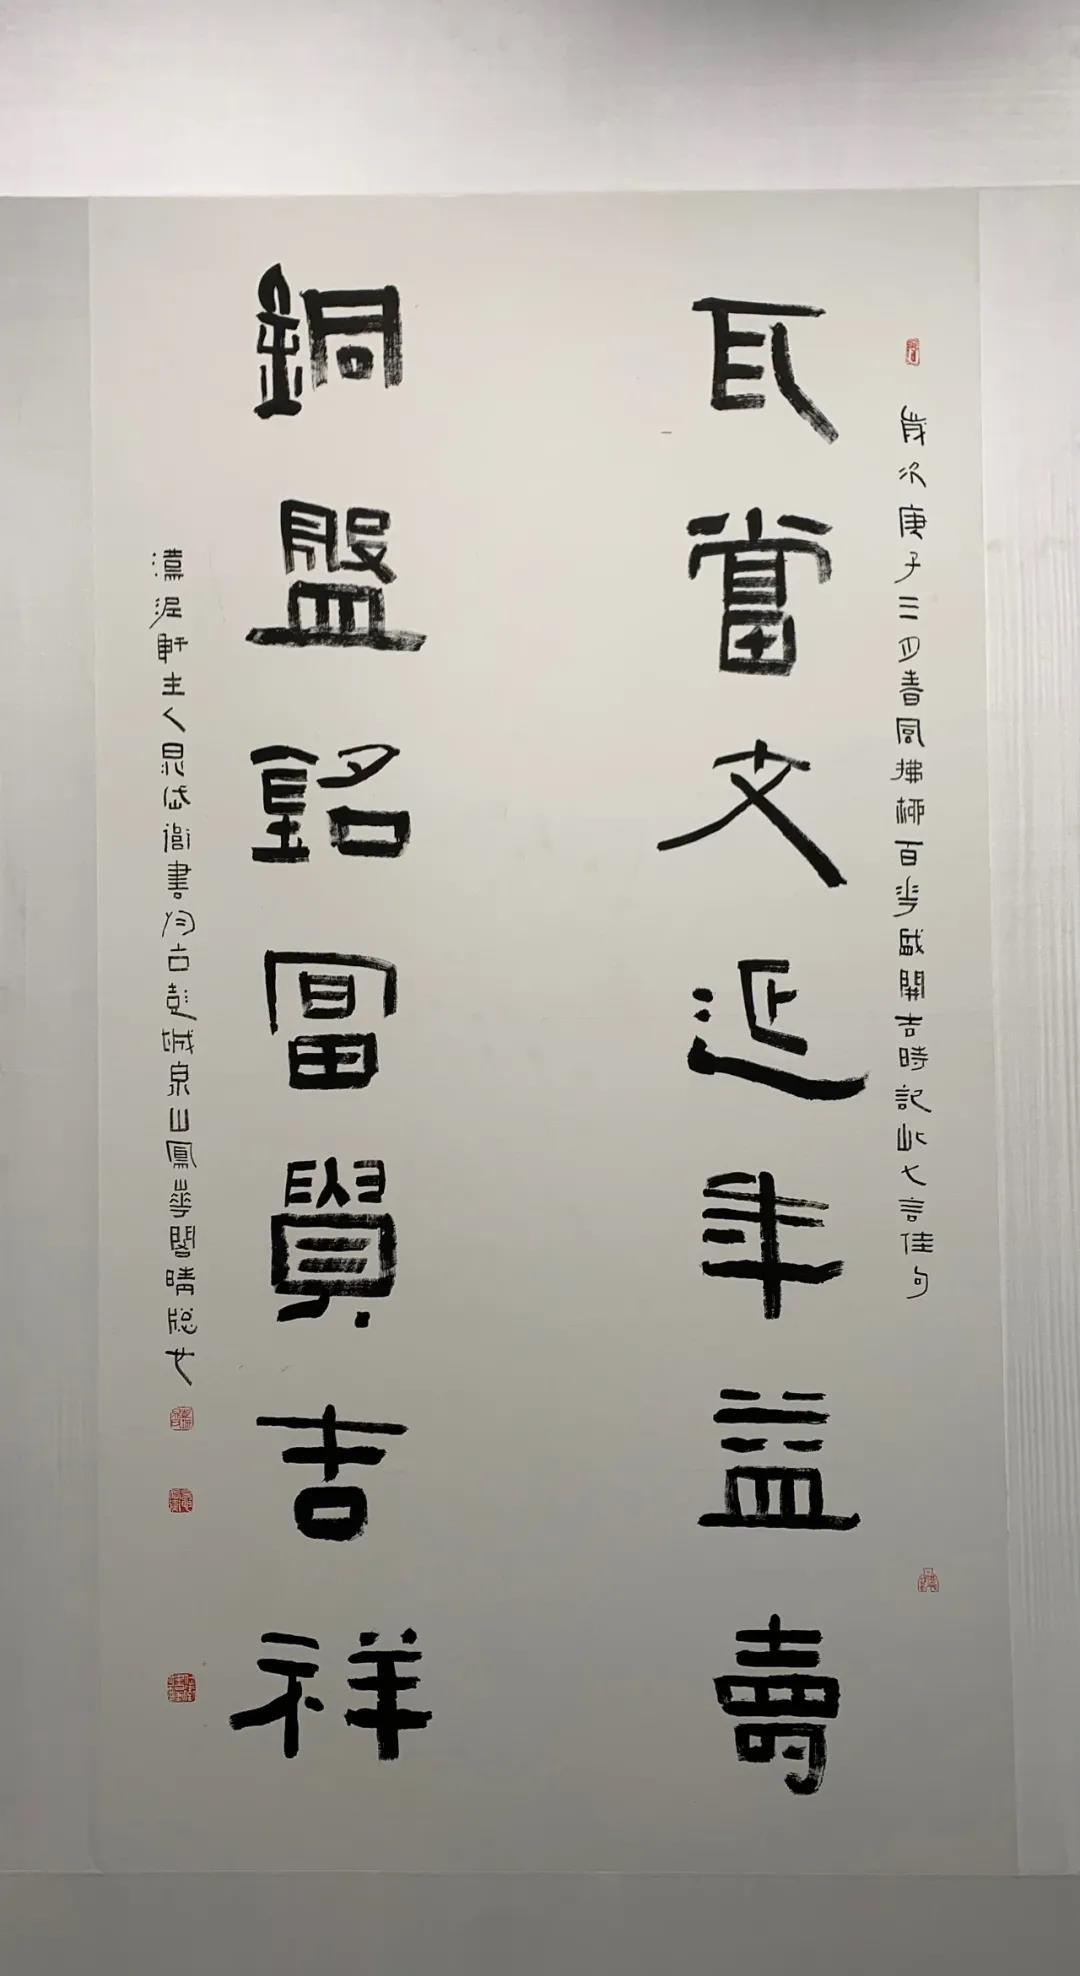 歲次庚子三月春風拂柳百花盛開吉時記此七言佳句
瓦當文延年益壽
銅盤銘富貴吉祥
軒主人晁岱衛書於古彭城泉山鳳華閣晴窓